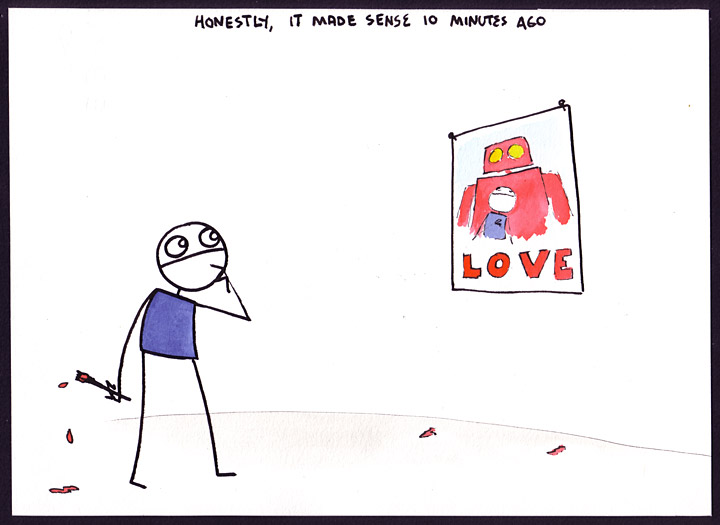 HONESTLY, IT MADE SENSE 10 MINUTES AGO
LOVE